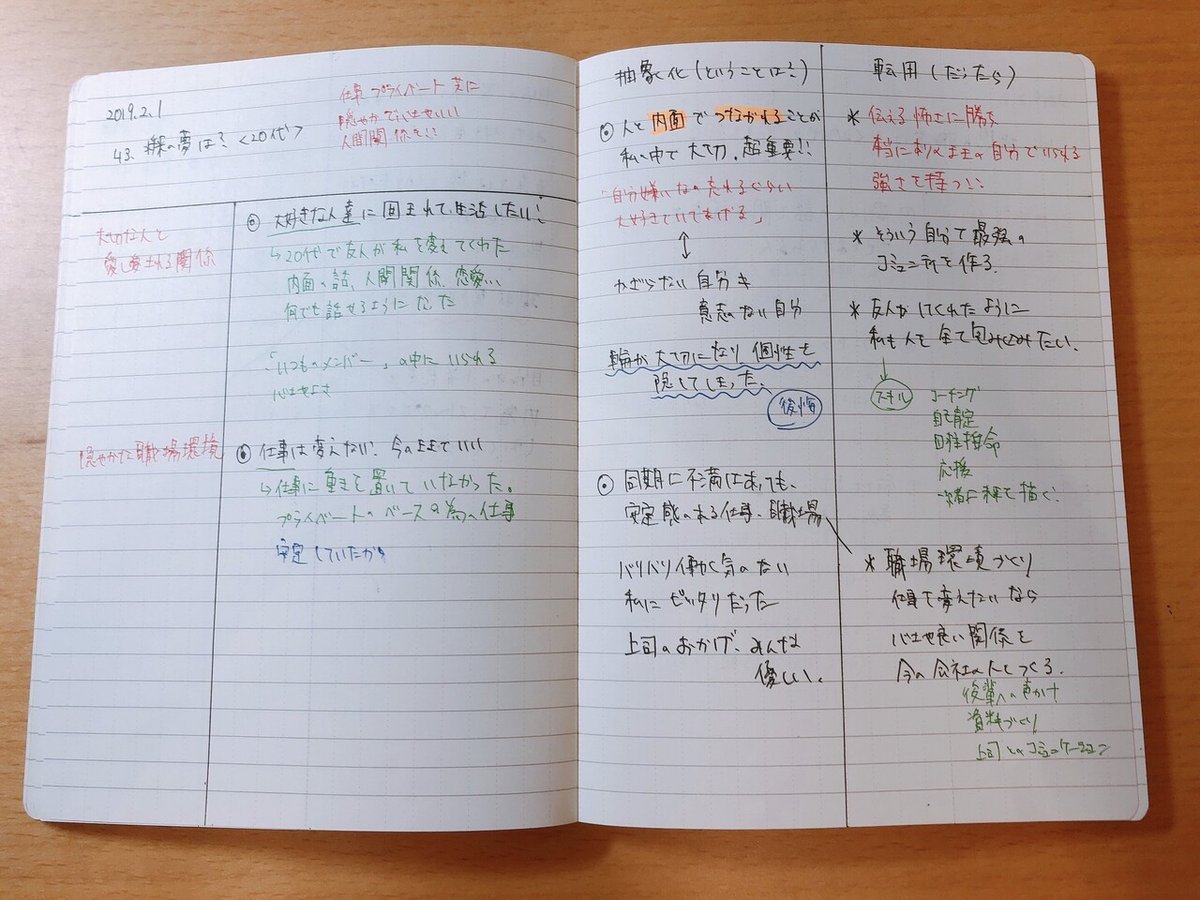 2019.2.1
43. 将来の夢は?<20代>
仕事 プライベート 共に
穏やかでいせいいい
人間関係を!!
大切な人と
愛し愛される関係
大好きな人達に囲まれて生活したい!
↳20代で友人が私を変えてくれた
内面の話、人間関係、恋愛...
何でも話せるようになった
「いつものメンバー」の中にいられる
心地よさ
穏やかな職場環境
仕事は変えない、今のままでいい
↳仕事に重きを置いていなかった。
プライベートのベースの為の仕事
安定していたから
抽象化(ということは?)
人と内面でつながれることが
私の中で大切、超重要!!
「自分嫌いなの忘れるぐらい
大好きでいてあげる」
↕
かざらない自分 ≠
意志のない自分
輪が大切になり、個性を
隠してしまった。
後悔
同期に不満はあっても、
安定感のある仕事、職場
バリバリ働く気のない
私にピッタリだった
上司のおかげ、みんな
優しい。
転用(だったら)
* 伝える怖さに勝ち
本当にありのままの自分でいられる
強さを持つ!!
* そういう自分で最強の
コミュニティを作る。
* 友人がしてくれたように
私も人を全て包み込みたい。
スキル
コーチング
自己肯定
自性使命
応援
一緒に未来を描く。
* 職場環境づくり
仕事を変えたいなら
心地良い関係を
今の会社の人とつくる。
後輩への声かけ
資料づくり
上司とのコミュニケーション